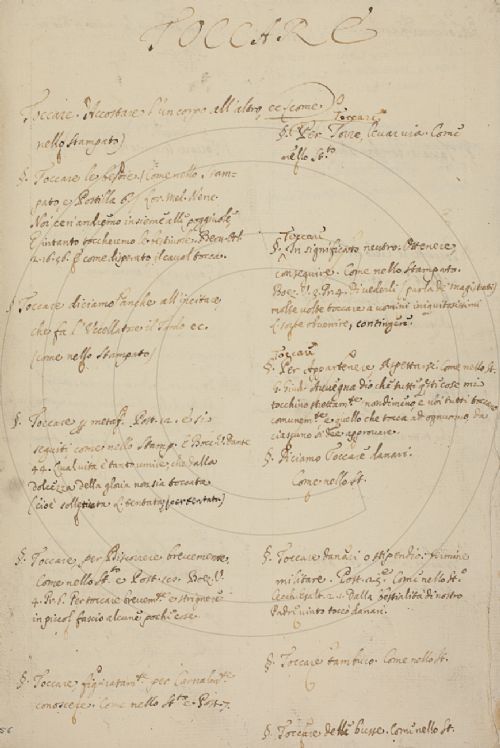 TOCCARE
Toccare. Accostare l'un corpo all'altro, ec. (come
nello Stampato)
§. Toccare le bestie. (Come nello Stam-
pato e Postilla 6.) Lor. Med. Nenc.
Noi ce n'andremo insieme alle poggiole
E intanto toccheremo le bestiuole. Bern. Orl.
come disperato il caval tocca.
§ Toccare diciamo anche all'incitare
che fa l'Uccellatore il Tordo ec.
(come nello Stampato)
§. Toccare p metaf. Post. 12. e si
seguiti come nello Stamp. E Bocc. Vit. Dante
44. Qual vita è tanto umile, che dalla
dolcezza della gloria non sia toccata
(cioè solleticata L. tentata)
§. Toccare per Discorrere brevemente.
Come nello Stto e Post. Boez. V.
4. Pr. 6. Per toccare brevemte e strignere
in piccol fascio alcune poche cose.
§. Toccare figuratamte per Carnalmte
conoscere. Come nello Stto e Post. 7.
Toccare
§. Per Torre, levar via. Come
nello Stto
Toccare
§. In significato neutro. Ottenere,
Conseguire. Come nello Stampato.
Boez. V. 3. Pr. 4. Di vederli (parla de' magistrati)
molte volte toccare a uomini iniquitosissimi
L. sæpe obvenire, contingere.
Toccare
§. Per Appartenere, Aspettarsi. Come nello St.
Avvegna dio che tutti qsti cose mi
tocchino strettamte nondimeno e' voi tutti toccano
comunemte e quello che tocca ad ognuno, da
ciascuno si dee approvare.
§. Diciamo Toccare danari.
Come nello St.
§. Toccare danari o stipendio: termine
militare. Post. 23. Come nello Sto
Cecch. Esalt. 2. 1. Dalla bestialità di nostro
Padre viato toccò danari.
§. Toccare tamburo. Come nello St.
§. Toccare delle busse. Come nello St.